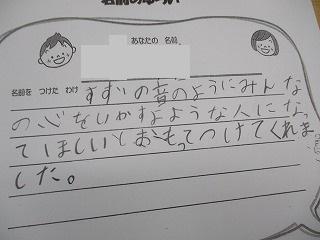 あなたの 名前
名前を つけた わけ
すずの音のようにみんな
の心をいかすような人になっ
てほしいとおもってつけてくれま
した。